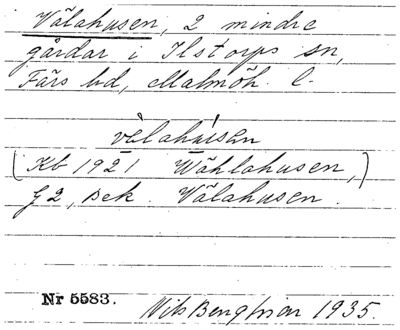 Välahusen, 2 mindre
gårdar i Ilstorps sn,
Färs hd, Malmöh. l.
vèlahúsen
(Kb 1921 Wählahusen,)
G2, Bek. Välahusen.
Nr 5583. Nils Bengtsson 1935.